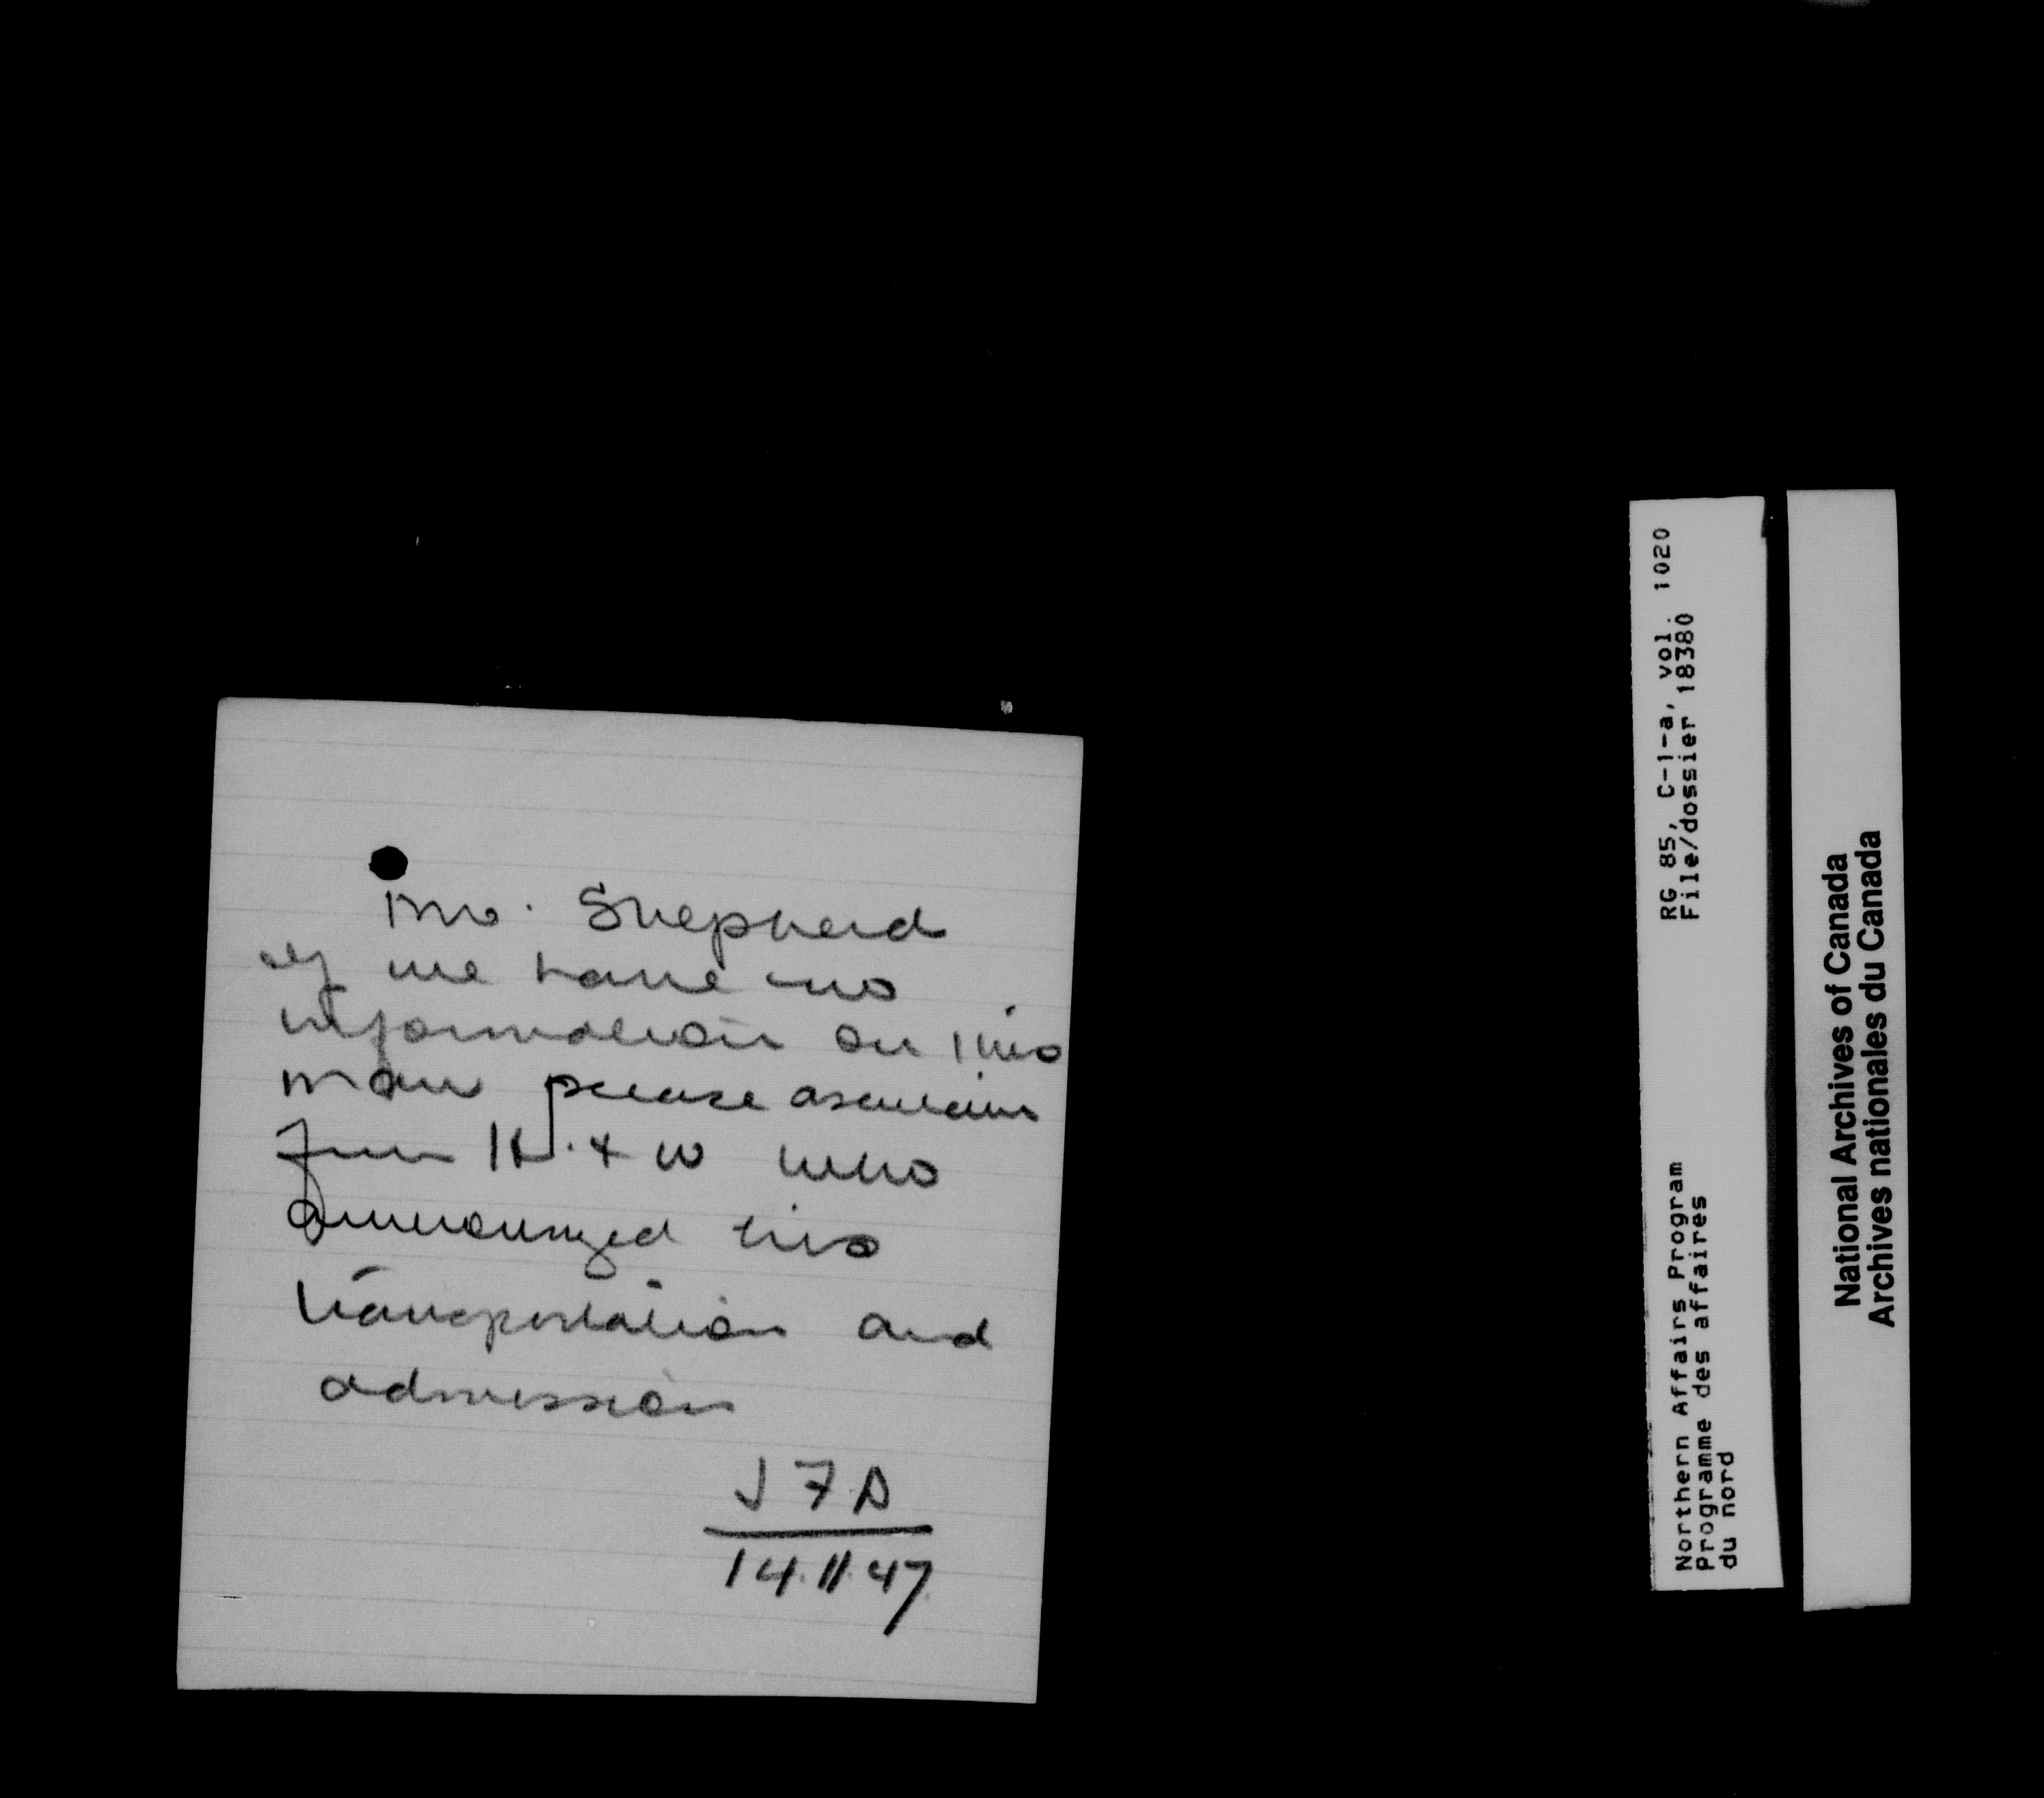 Mr. Shepherd
if we have no
information on this
man please ascertain
from H. & W who
his
transportation and
admission
J F D
14.11.47
RG 85, C-1-a, vol. 1020
File/dossier 18380
Northern Affairs Program
Programme des affaires
du nord
National Archives of Canada
Archives nationales du Canada